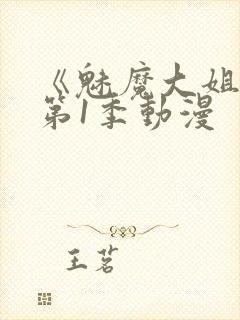 《魅魔大姐
第1季動漫
王茗